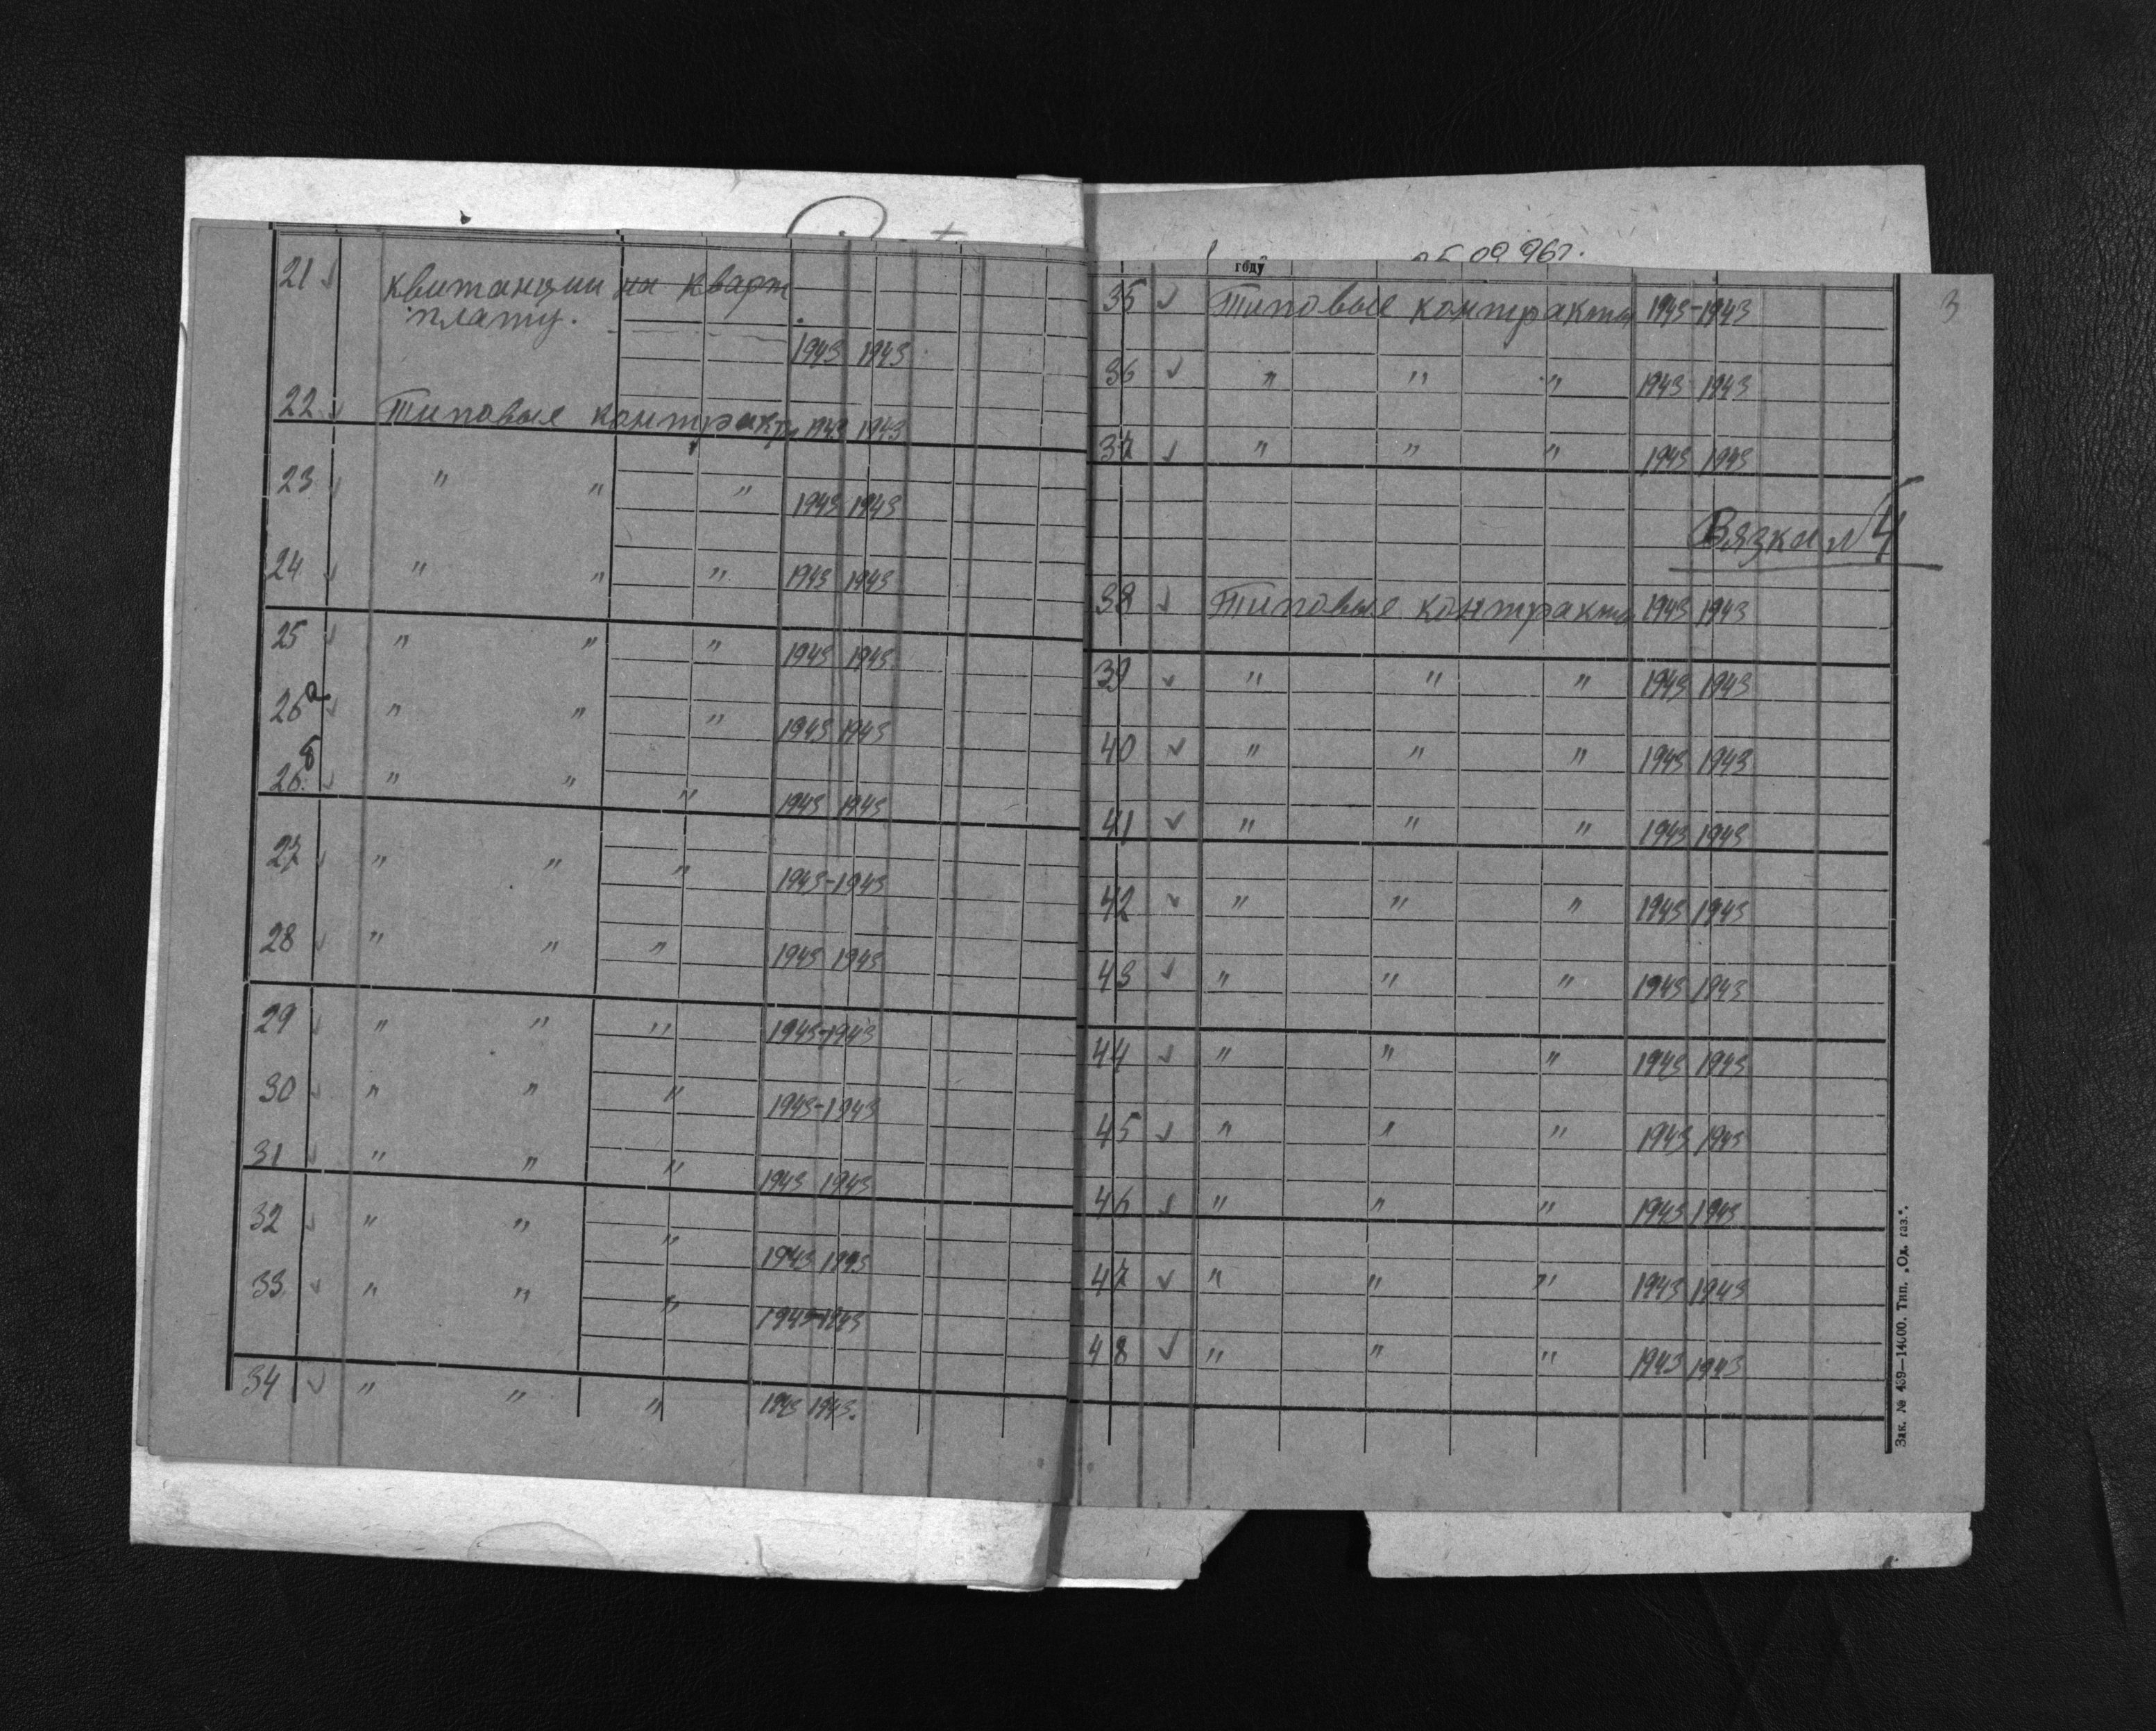 21 ✓ квитанции на кварт
плату.
1943 1943
22 ✓ Типовые контракты 1943 1943
23 ✓ " " " 1943 1943
24 ✓ " " " 1943 1943
25 ✓ " " " 1943 1943
26а ✓ " " " 1943 1943
26б ✓ " " " 1943 1943
27 ✓ " " " 1943-1943
28 ✓ " " " 1943 1943
29 ✓ " " " 1943-1943
30 ✓ " " " 1943-1943
31 ✓ " " " 1943 1943
32 ✓ " " " 1943 1943
33 ✓ " " " 1943-1943
34 ✓ " " " 1943 1943.
05.09.96г.
году
3
35 ✓ Типовые контракты 1943-1943
36 ✓ " " " 1943 1943
37 ✓ " " " 1943 1943
Вязка №4
38 ✓ Типовые контракты 1943 1943
39 ✓ " " " 1943 1943
40 ✓ " " " 1943 1943
41 ✓ " " " 1943 1943
42 ✓ " " " 1943 1943
43 ✓ " " " 1943 1943
44 ✓ " " " 1943 1943
45 ✓ " " " 1943 1943
46 ✓ " " " 1943 1943
47 ✓ " " " 1943 1943
48 ✓ " " " 1943 1943
Зак. № 439—14000. Тип. „Од. газ.".